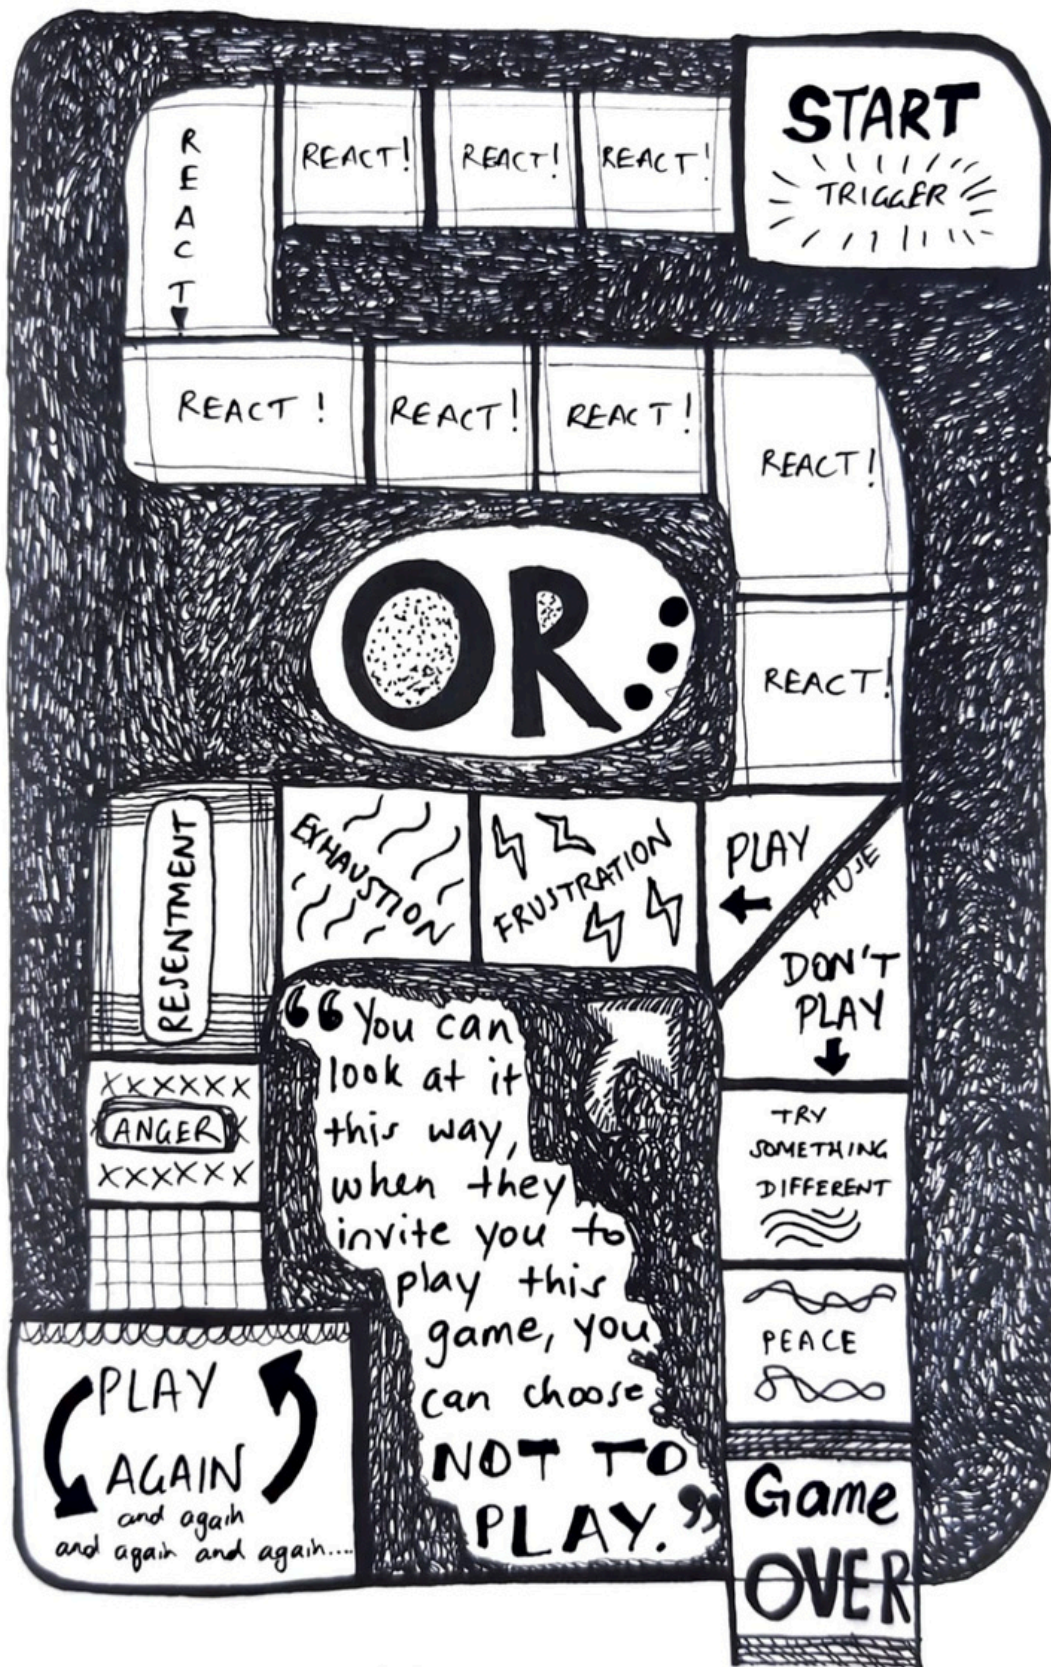 START
TRIGGER
REACT!
REACT!
REACT!
REACT
REACT!
REACT!
REACT!
REACT!
REACT!
OR...
PLAY
PAUSE
DON'T
PLAY
FRUSTRATION
EXHAUSTION
RESENTMENT
XXXXXX
ANGER
XXXXXX
PLAY
AGAIN
and again
and again and again....
"You can
look at it
this way,
when they
invite you to
play this
game, you
can choose
NOT TO
PLAY."
TRY
SOMETHING
DIFFERENT
PEACE
Game
OVER